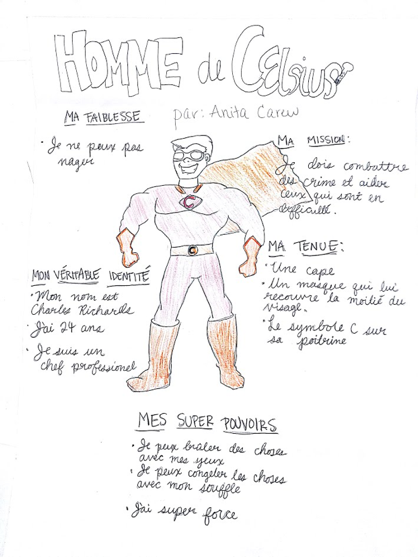 HOMME de Celsius
par: Anita Carew
MA FAIBLESSE
• Je ne peux pas
nager
MA MISSION:
Je dois combattre
des crime et aider
ceux qui sont en
difficulté.
MA TENUE:
• Une cape
• Un masque qui lui
recouvre la moitié du
visage.
• Le symbole C sur
sa poitrine
MON VÉRITABLE IDENTITÉ
• Mon nom est
Charles Richards
• J'ai 24 ans
• Je suis un
chef professionel
C
C
MES SUPER POUVOIRS
• Je peux brûler des choses
avec mes yeux
• Je peux congeler les choses
avec mon souffle
• J'ai super force